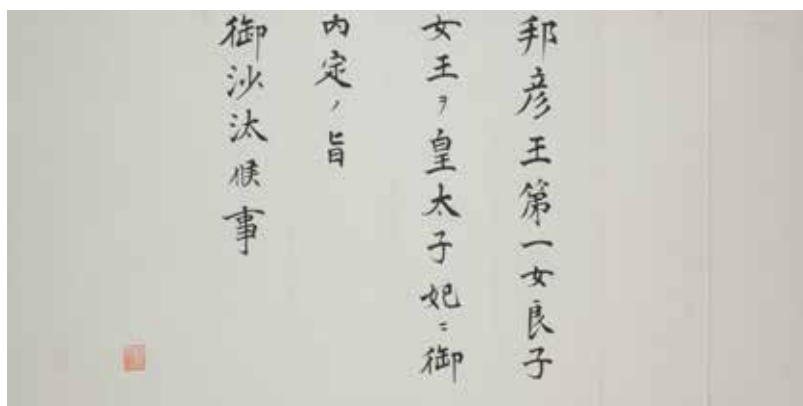 邦彦王第一女良子
女王ヲ皇太子妃ニ御
内定ノ旨
御沙汰候事